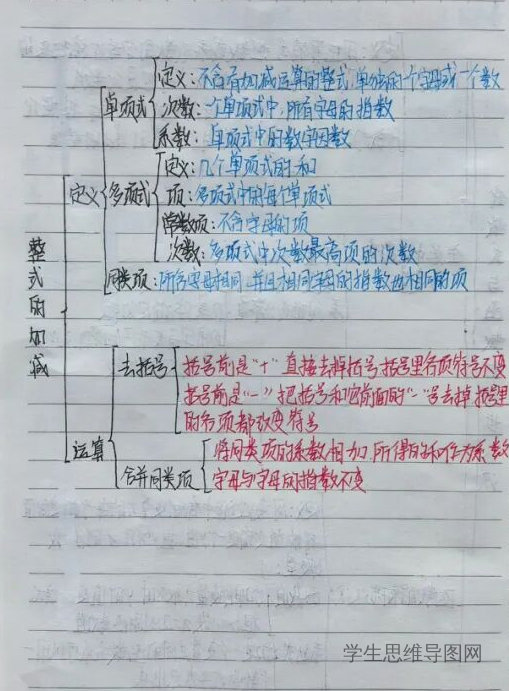 整式的加减
定义
单项式
定义：不含有加减运算的整式，单独的一个字母或一个数
次数：一个单项式中，所有字母的指数
系数：单项式中的数字因数
多项式
定义：几个单项式的和
项：多项式中的每个单项式
常数项：不含字母的项
次数：多项式中次数最高项的次数
同类项：所含字母相同，并且相同字母的指数也相同的项
运算
去括号
括号前是“+”直接去掉括号，括号里各项符号不变
括号前是“-”把括号和它前面的“-”号去掉，括号里
的各项都改变符号
合并同类项
将同类项的系数相加，所得的和作为系数
字母与字母的指数不变
学生思维导图网